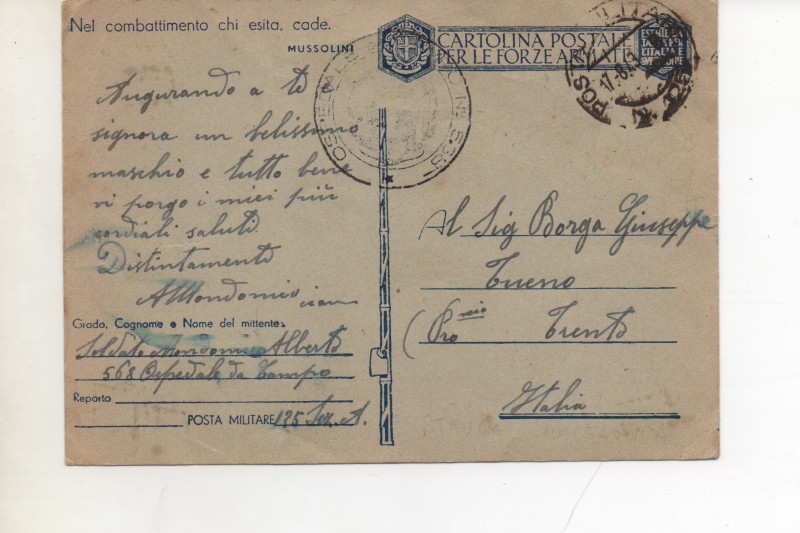 Nel combattimento chi esita, cade.
MUSSOLINI
CARTOLINA POSTALE
PER LE FORZE ARMATE
ESENTE DA
TASSA PER
L'ITALIA E
OSPEDALE DA CAMPO N. 568
POSTA MILITARE
17.6.
N. 125
Augurando a te
signora un belissimo
maschio e tutto bene
vi porgo i miei più
cordiali saluti
Distintamente
AMondonico
Grado, Cognome e Nome del mittente:
Soldato Mondonico Alberto
568 Ospedale da Campo
Reparto
POSTA MILITARE 125 Sez. A.
Al Sig Borga Giuseppe
Tueno
(Pro Trento
Italia